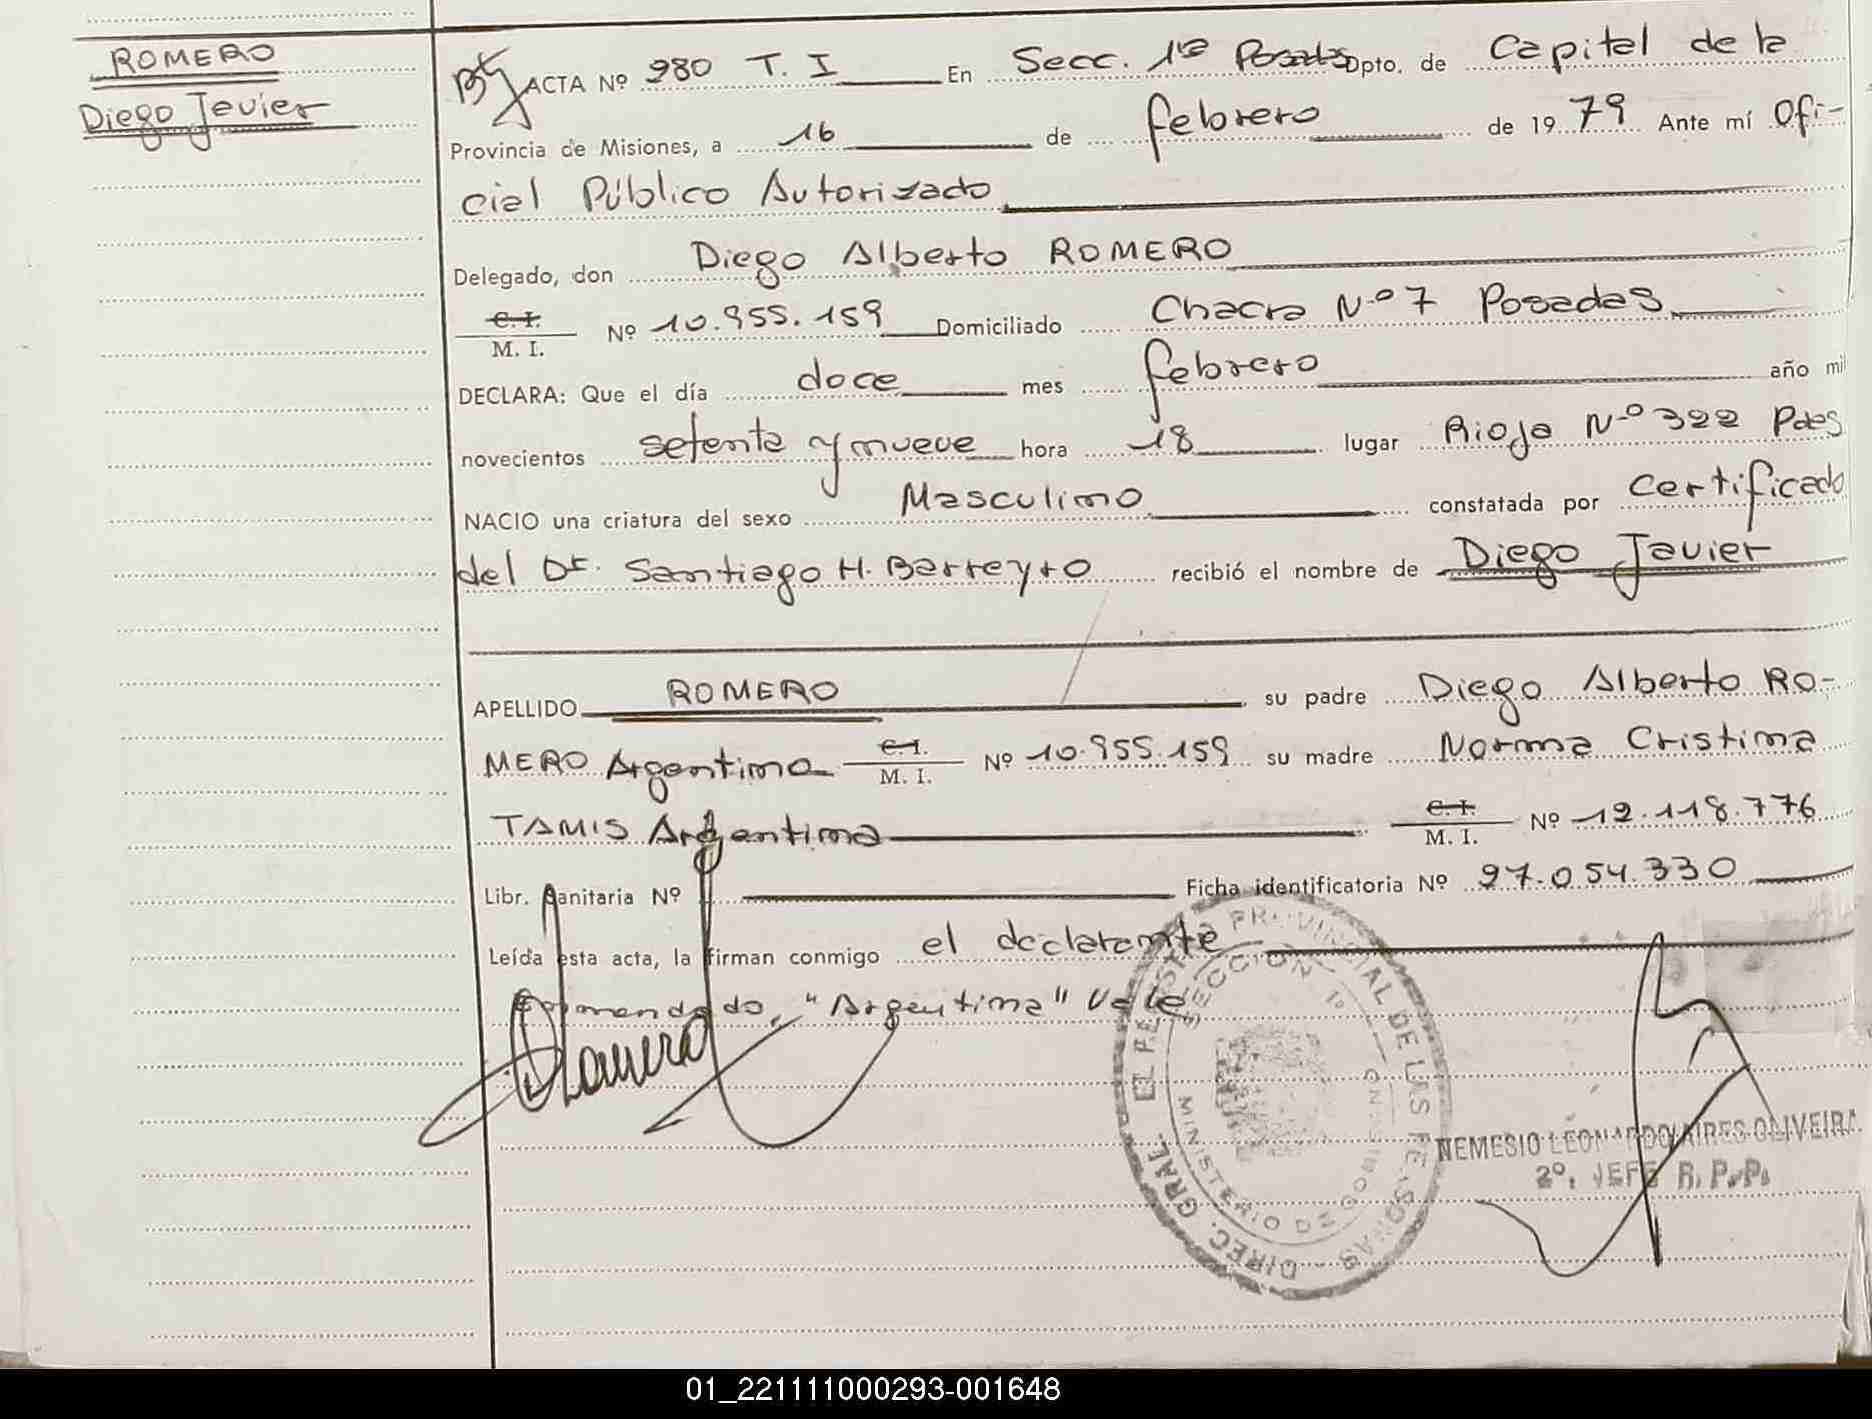 ROMERO
Diego Javier
ACTA Nº 980 T. I En Secc. 1ra Posadas Dpto. de Capital de la
Provincia de Misiones, a 16 de febrero de 1979 Ante mí Ofi-
cial Público Autorizado
Delegado, don Diego Alberto ROMERO
C. I.
M. I. Nº 10.955.159 Domiciliado Chacra Nº 7 Posadas
DECLARA: Que el día doce mes febrero año mil
novecientos setenta y nueve hora 18 lugar Rioja Nº 322 Pdas
NACIO una criatura del sexo Masculino constatada por Certificado
del Dr. Santiago H. Barreyro recibió el nombre de Diego Javier
APELLIDO ROMERO su padre Diego Alberto RO-
MERO Argentino C. I. M. I. Nº 10.955.159 su madre Norma Cristina
TAMIS Argentina C. I. M. I. Nº 12.118.776
Libr. Sanitaria Nº Ficha identificatoria Nº 97.054.330
Leída esta acta, la firman conmigo el declarante
Enmendado, "Argentina" Vale
DIREC. GRAL. DEL REGISTRO PROVINCIAL DE LAS PERSONAS
SECCION 1º
MINISTERIO DE GOBIERNO
NEMESIO LEONARDO AIRES OLIVEIRA
2º. JEFE R. P. P.
01_221111000293-001648